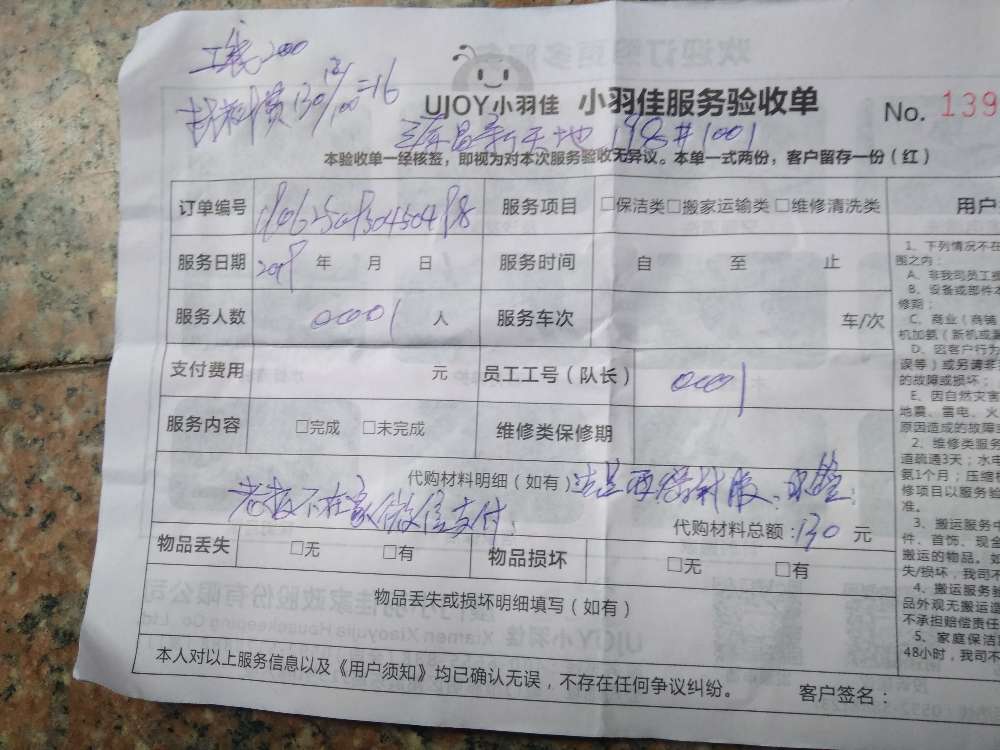 工钱200
材料费130
=16
UJOY小羽佳 小羽佳服务验收单
No. 139
新天地 19 #1001
本验收单一经核签，即视为对本次服务验收无异议。本单一式两份，客户留存一份（红）
订单编号
服务项目 □保洁类□搬家运输类□维修清洗类
用户
服务日期 2019 年 月 日
服务时间 自 至 止
服务人数 0001 人
服务车次 车/次
支付费用 元
员工工号（队长） 0001
服务内容 □完成 □未完成
维修类保修期
代购材料明细（如有）
老板不在家微信支付
代购材料总额：130 元
物品丢失 □无 □有
物品损坏 □无 □有
物品丢失或损坏明细填写（如有）
本人对以上服务信息以及《用户须知》均已确认无误，不存在任何争议纠纷。
客户签名：
1、下列情况不在
图之内：
A、非我司员工
B、设备或部件本
修期；
C、商业（商销
机加氨（新机或
D、因客户行为
误等）或另请非
的故障或损坏；
E、因自然灾害
地震、雷电、火
原因造成的故障或
2、维修类服务
道疏通3天；水电
氨1个月；压缩
修项目以服务验
准。
3、搬运服务中
件、首饰、现金
搬运的物品。如
失/损坏，我司不
4、搬运服务验
品外观无搬运造
不承担赔偿责任
5、家庭保洁
48小时，我司不